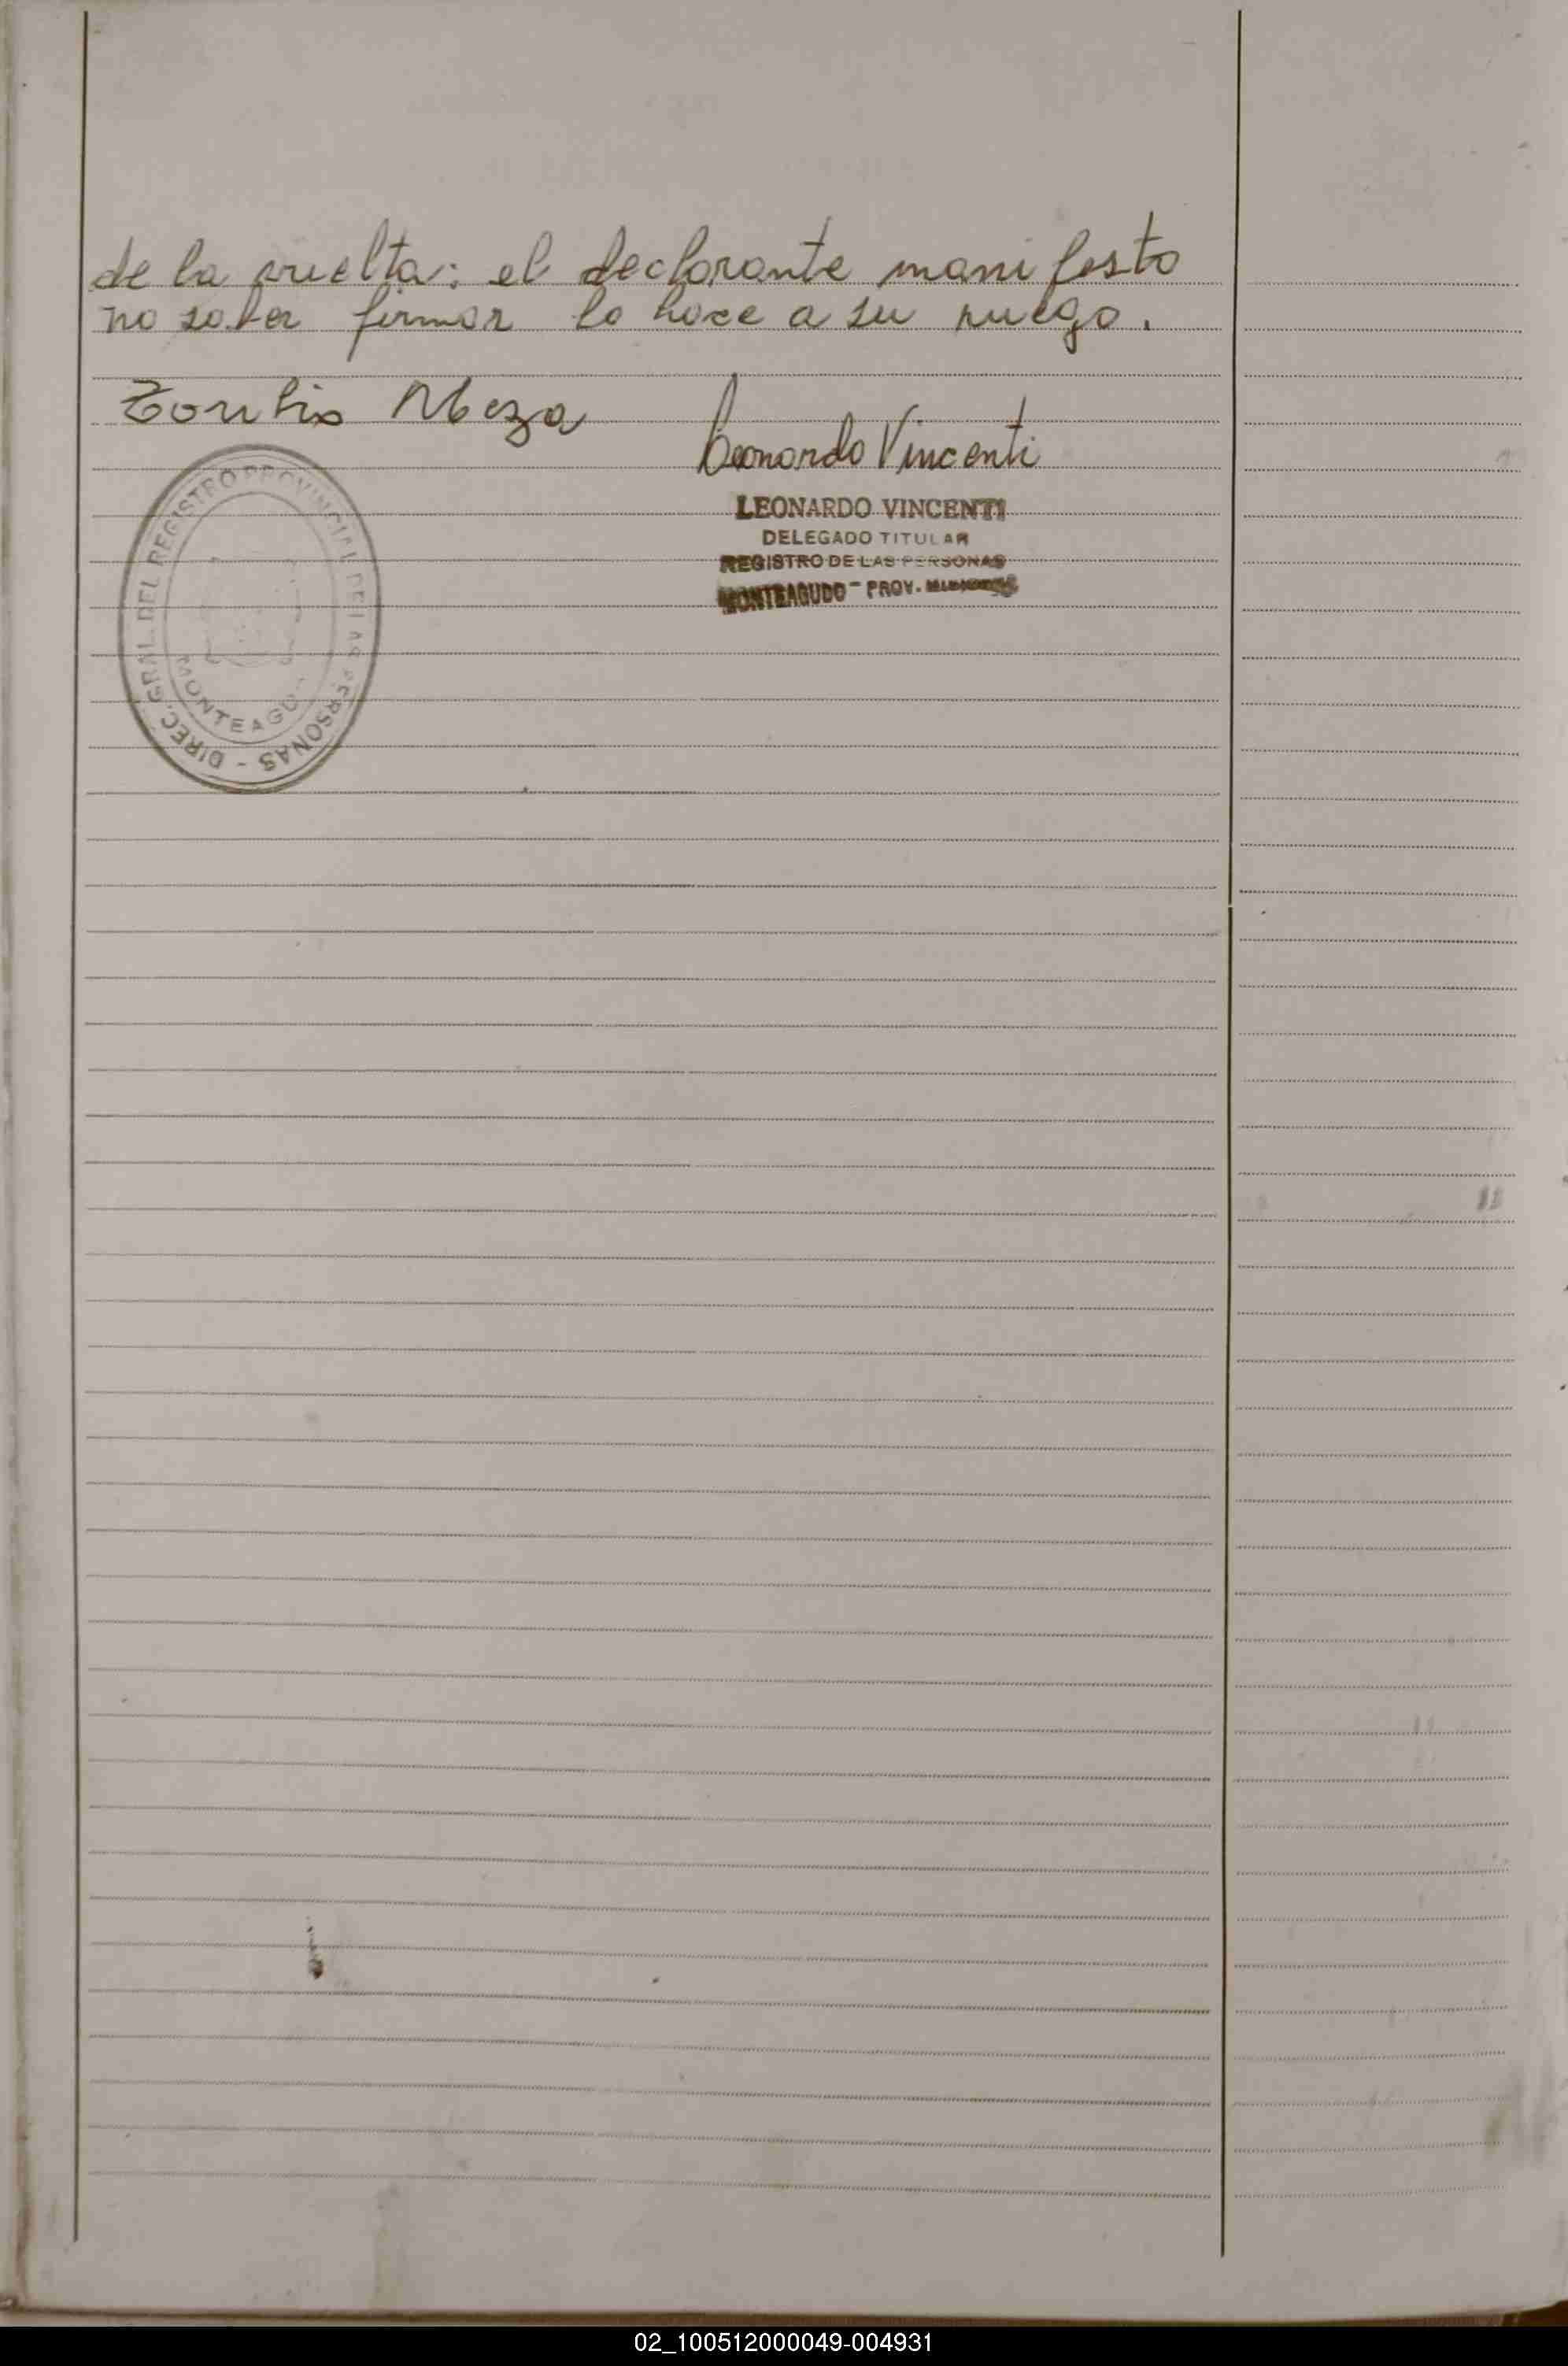 de la vuelta: el declarante manifesto
no saber firmar lo hace a su ruego.
Toribio Meza
Leonardo Vincenti
LEONARDO VINCENTI
DELEGADO TITULAR
REGISTRO DE LAS PERSONAS
MONTEAGUDO - PROV. MISIONES
DIREC. GRAL. DEL REGISTRO PROVINCIAL DE LAS PERSONAS -
MONTEAGU
02_100512000049-004931